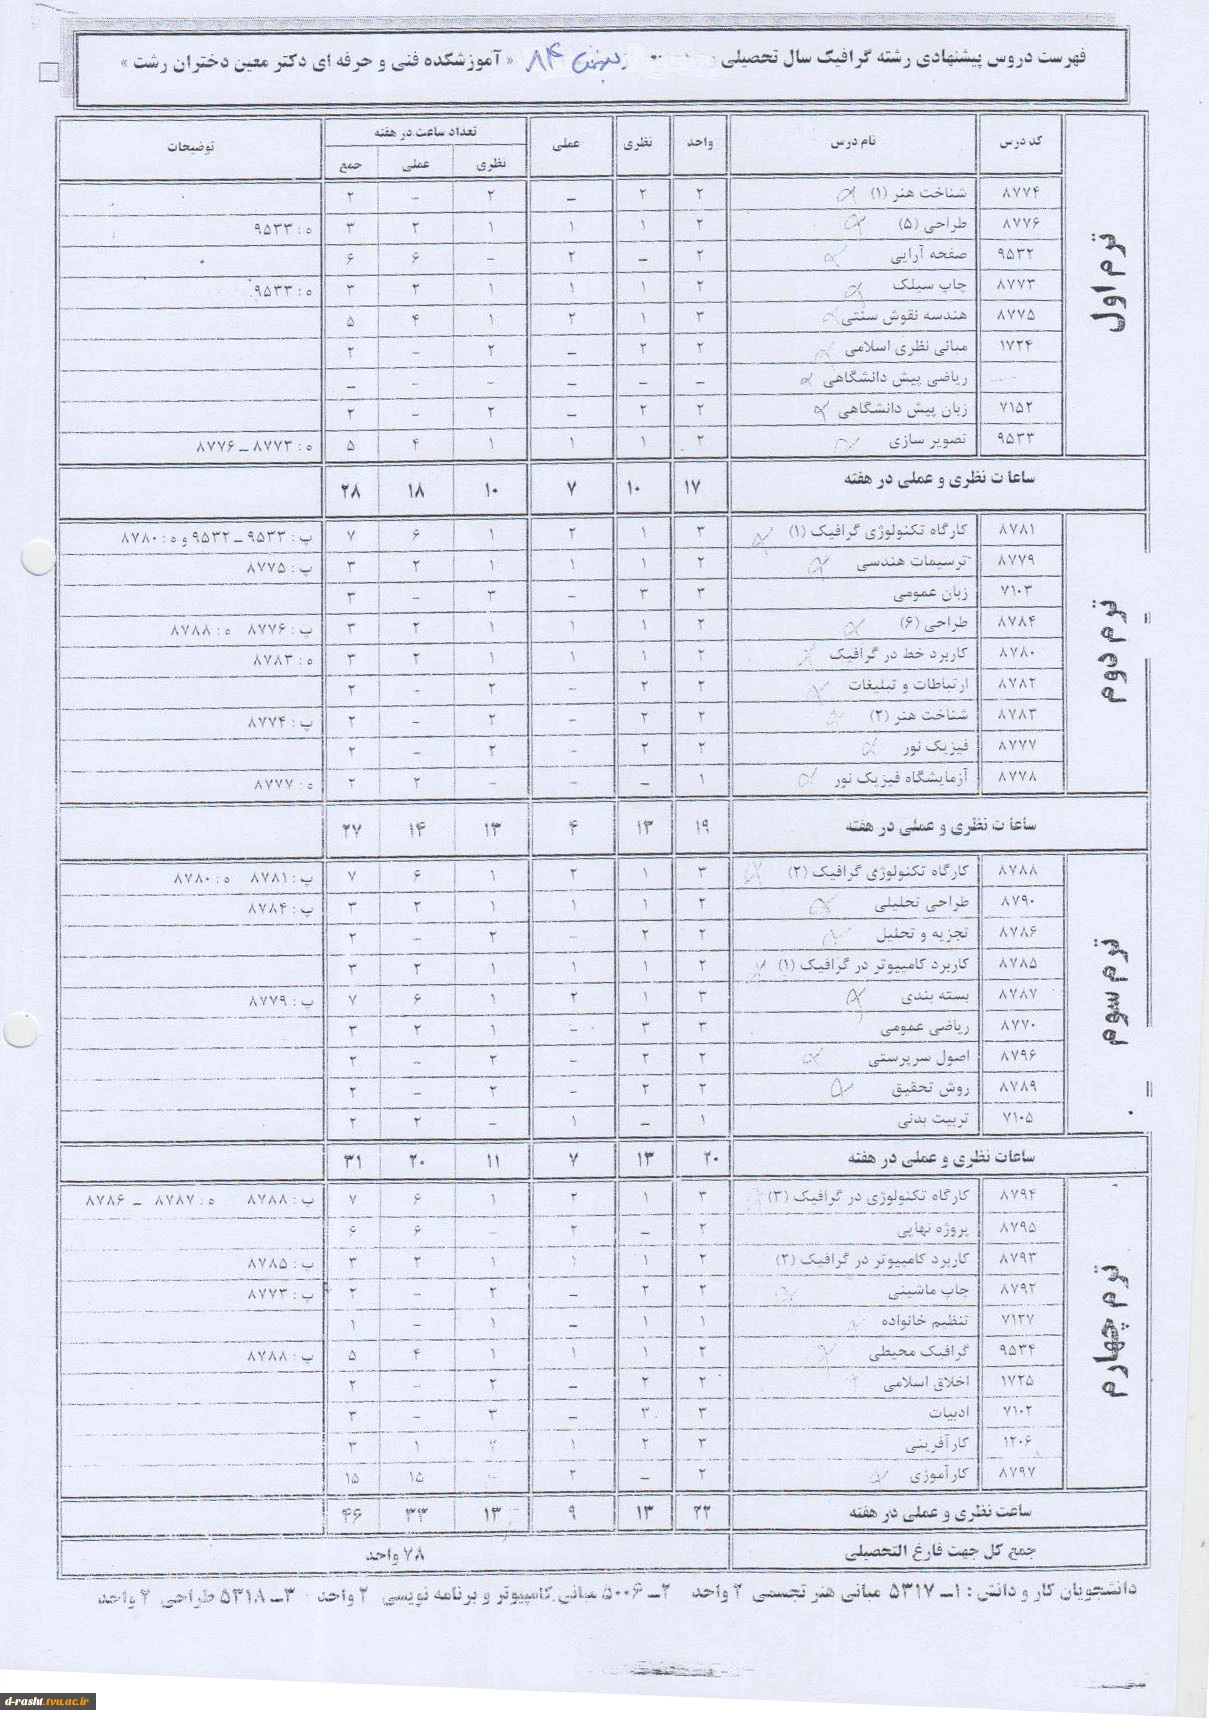 فهرست دروس پیشنهادی رشته گرافیک سال تحصیلی ۸۴ « آموزشکده فنی و حرفه ای دکتر معین دختران رشت »
کد درس نام درس واحد نظری عملی تعداد ساعت در هفته توضیحات
نظری عملی جمع
ترم اول
۸۷۷۴ شناخت هنر (۱) ۲ ۲ – ۲ – ۲
۸۷۷۶ طراحی (۵) ۲ ۱ ۱ ۱ ۲ ۳ ه : ۹۵۳۳
۹۵۳۲ صفحه آرایی ۲ – ۲ – ۶ ۶
۸۷۷۳ چاپ سیلک ۲ ۱ ۱ ۱ ۲ ۳ ه : ۹۵۳۳
۸۷۷۵ هندسه نقوش سنتی ۳ ۱ ۲ ۱ ۴ ۵
۱۷۲۴ مبانی نظری اسلامی ۲ ۲ – ۲ – ۲
ریاضی پیش دانشگاهی – – – – – –
۷۱۵۲ زبان پیش دانشگاهی ۲ ۲ – ۲ – ۲
۹۵۳۳ تصویر سازی ۲ ۱ ۱ ۱ ۴ ۵ ه : ۸۷۷۳ – ۸۷۷۶
ساعات نظری و عملی در هفته ۱۷ ۱۰ ۷ ۱۰ ۱۸ ۲۸
ترم دوم
۸۷۸۱ کارگاه تکنولوژی گرافیک (۱) ۳ ۱ ۲ ۱ ۶ ۷ پ : ۹۵۳۳ – ۹۵۳۲ و ه : ۸۷۸۰
۸۷۷۹ ترسیمات هندسی ۲ ۱ ۱ ۱ ۲ ۳ پ : ۸۷۷۵
۷۱۰۳ زبان عمومی ۳ ۳ – ۳ – ۳
۸۷۸۴ طراحی (۶) ۲ ۱ ۱ ۱ ۲ ۳ پ : ۸۷۷۶ ه : ۸۷۸۸
۸۷۸۰ کاربرد خط در گرافیک ۲ ۱ ۱ ۱ ۲ ۳ ه : ۸۷۸۳
۸۷۸۲ ارتباطات و تبلیغات ۲ ۲ – ۲ – ۲
۸۷۸۳ شناخت هنر (۲) ۲ ۲ – ۲ – ۲ پ : ۸۷۷۴
۸۷۷۷ فیزیک نور ۲ ۲ – ۲ – ۲
۸۷۷۸ آزمایشگاه فیزیک نور ۱ – – – ۲ ۲ ه : ۸۷۷۷
ساعات نظری و عملی در هفته ۱۹ ۱۳ ۴ ۱۳ ۱۴ ۲۷
ترم سوم
۸۷۸۸ کارگاه تکنولوژی گرافیک (۲) ۳ ۱ ۲ ۱ ۶ ۷ پ : ۸۷۸۱ ه : ۸۷۸۰
۸۷۹۰ طراحی تحلیلی ۲ ۱ ۱ ۱ ۲ ۳ پ : ۸۷۸۴
۸۷۸۶ تجزیه و تحلیل ۲ ۲ – ۲ – ۲
۸۷۸۵ کاربرد کامپیوتر در گرافیک (۱) ۲ ۱ ۱ ۱ ۲ ۳
۸۷۸۷ بسته بندی ۳ ۱ ۲ ۱ ۶ ۷ پ : ۸۷۷۹
۸۷۷۰ ریاضی عمومی ۳ ۳ – ۱ ۲ ۳
۸۷۹۶ اصول سرپرستی ۲ ۲ – ۲ – ۲
۸۷۸۹ روش تحقیق ۲ ۲ – ۲ – ۲
۷۱۰۵ تربیت بدنی ۱ – ۱ – ۲ ۲
ساعات نظری و عملی در هفته ۲۰ ۱۳ ۷ ۱۱ ۲۰ ۳۱
ترم چهارم
۸۷۹۴ کارگاه تکنولوژی در گرافیک (۳) ۳ ۱ ۲ ۱ ۶ ۷ پ : ۸۷۸۸ ه : ۸۷۸۷ – ۸۷۸۶
۸۷۹۵ پروژه نهایی ۲ – ۲ – ۶ ۶
۸۷۹۳ کاربرد کامپیوتر در گرافیک (۲) ۲ ۱ ۱ ۱ ۲ ۳ پ : ۸۷۸۵
۸۷۹۲ چاپ ماشینی ۲ ۲ – ۲ – ۲ پ : ۸۷۷۳
۷۱۲۷ تنظیم خانواده ۱ ۱ – ۱ – ۱
۹۵۳۴ گرافیک محیطی ۲ ۱ ۱ ۱ ۴ ۵ پ : ۸۷۸۸
۱۷۲۵ اخلاق اسلامی ۲ ۲ – ۲ – ۲
۷۱۰۲ ادبیات ۳ ۳ – ۳ – ۳
۱۲۰۶ کارآفرینی ۳ ۲ ۱ ۲ ۱ ۳
۸۷۹۷ کارآموزی ۲ – ۲ – ۱۵ ۱۵
ساعت نظری و عملی در هفته ۲۲ ۱۳ ۹ ۱۳ ۳۳ ۴۶
جمع کل جهت فارغ التحصیلی ۷۸ واحد
دانشجویان کار و دانش : ۱– ۵۳۱۷ مبانی هنر تجسمی ۲ واحد ۲– ۵۰۰۶ مبانی کامپیوتر و برنامه نویسی ۲ واحد ۳– ۵۳۱۸ طراحی ۲ واحد
d-rasht.tvu.ac.ir